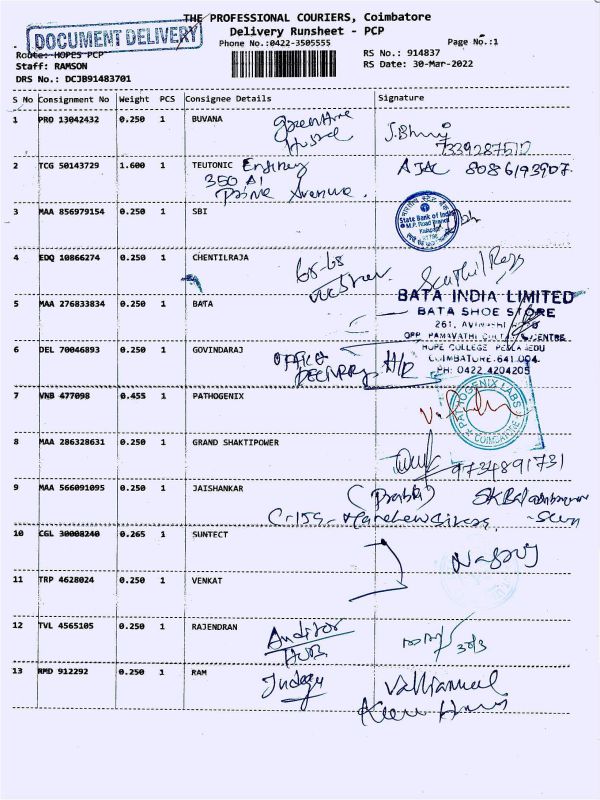 THE PROFESSIONAL COURIERS, Coimbatore
DOCUMENT DELIVERY
Delivery Runsheet - PCP
Phone No.:0422-3505555 Page No.:1
Route: HOPES PCP RS No.: 914837
Staff: RAMSON RS Date: 30-Mar-2022
DRS No.: DCJB91483701
S No Consignment No Weight PCS Consignee Details Signature
1 PRO 13042432 0.250 1 BUVANA
7339287512
2 TCG 50143729 1.600 1 TEUTONIC AJAC 8086193907
350 A1
Prime Avenue.
3 MAA 856979154 0.250 1 SBI
State Bank of India
M.P. Road Branch
4 EDQ 10866274 0.250 1 CHENTILRAJA 68-68
Senthil Raja
BATA INDIA LIMITED
5 MAA 276833834 0.250 1 BATA BATA SHOE STORE
261, AVINASHI
OPP. PAMAVATHI CENTRE
6 DEL 70046893 0.250 1 GOVINDARAJ OFFICE HOPE COLLEGE PEELAMEDU
DELIVERY H/R COIMBATURE.641 004.
PH: 0422 4204205
7 VNB 477098 0.455 1 PATHOGENIX
PATHOGENIX LABS
COIMBATORE
8 MAA 286328631 0.250 1 GRAND SHAKTIPOWER
9734891731
9 MAA 566091095 0.250 1 JAISHANKAR (Prabha)
10 CGL 30008240 0.265 1 SUNTECT
11 TRP 4628024 0.250 1 VENKAT
12 TVL 4565105 0.250 1 RAJENDRAN Auditor
13 RMD 912292 0.250 1 RAM Valliammal